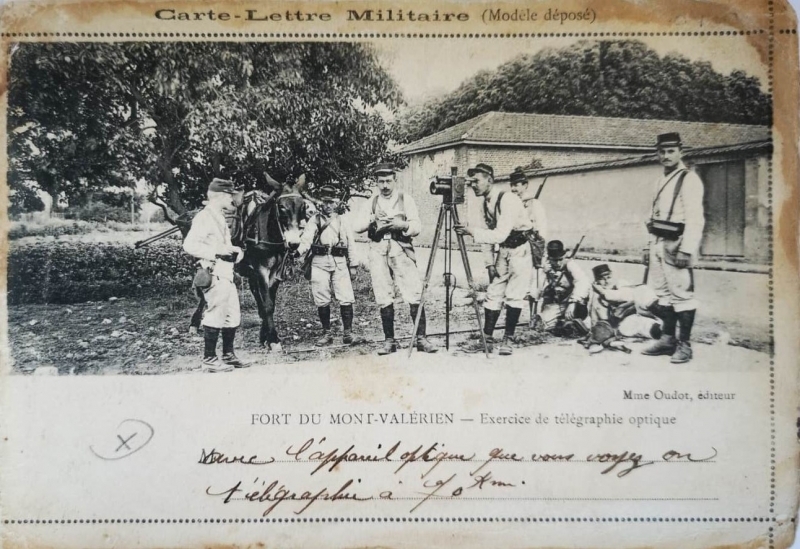 Carte-Lettre Militaire (Modèle déposé)
Mme Oudot, éditeur
FORT DU MONT-VALÉRIEN — Exercice de télégraphie optique
Avec l'appareil optique que vous voyez on
télégraphie à 70 Km.